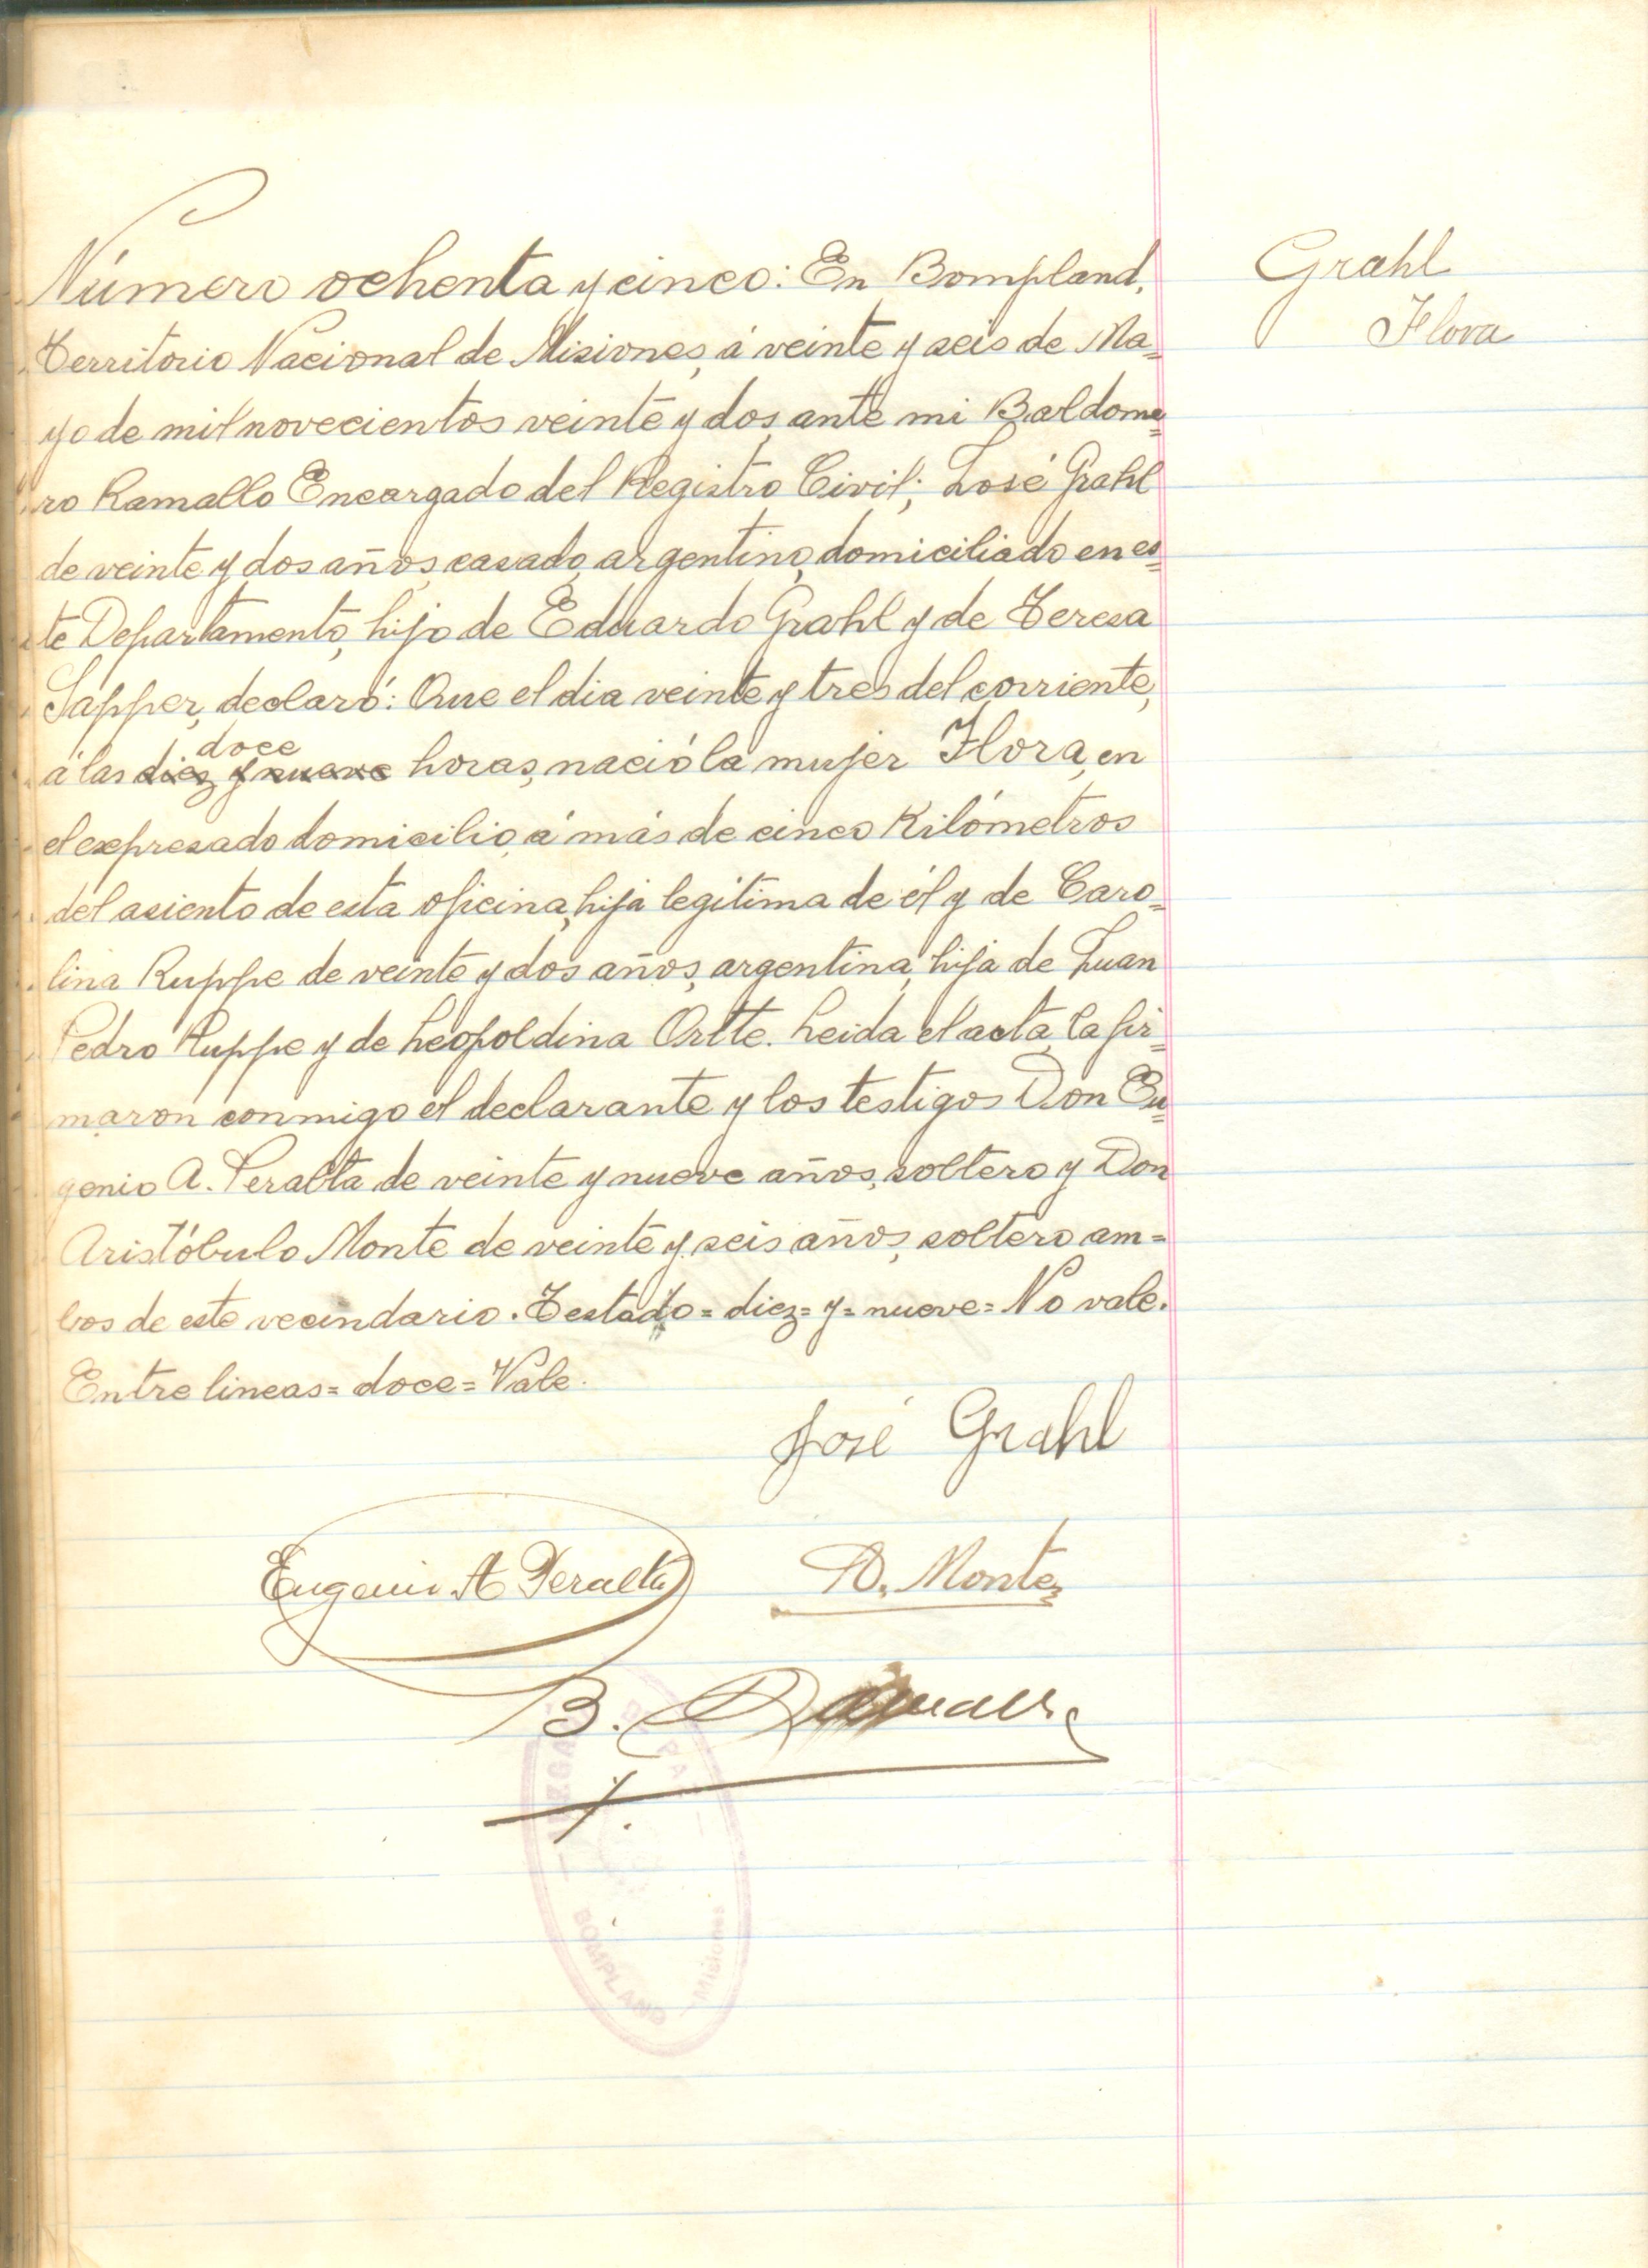 Número ochenta y cinco: En Bompland,
Territorio Nacional de Misiones, á veinte y seis de Ma=
yo de mil novecientos veinte y dos, ante mi Baldome=
ro Ramallo Encargado del Registro Civil; José Grahl
de veinte y dos años, casado, argentino, domiciliado en es=
te Departamento, hijo de Eduardo Grahl y de Teresa
Sapper, declaró: Que el dia veinte y tres del corriente,
doce
á las diez y nueve horas, nació la mujer Flora, en
el expresado domicilio, á más de cinco Kilómetros
del asiento de esta oficina, hija legítima de él y de Caro=
lina Ruppe de veinte y dos años, argentina, hija de Juan
Pedro Ruppe y de Leopoldina Ortte. Leida el acta, la fir=
maron conmigo el declarante y los testigos Don Eu=
genio A. Peralta de veinte y nueve años, soltero y Don
Aristóbulo Monte de veinte y seis años, soltero am=
bos de este vecindario. Testado = diez = y = nueve = No vale.
Entre lineas = doce = Vale.
Grahl
Flora
José Grahl
Eugenio A Peralta
A. Monte
B. Ramallo
BOMPLAND
Misiones